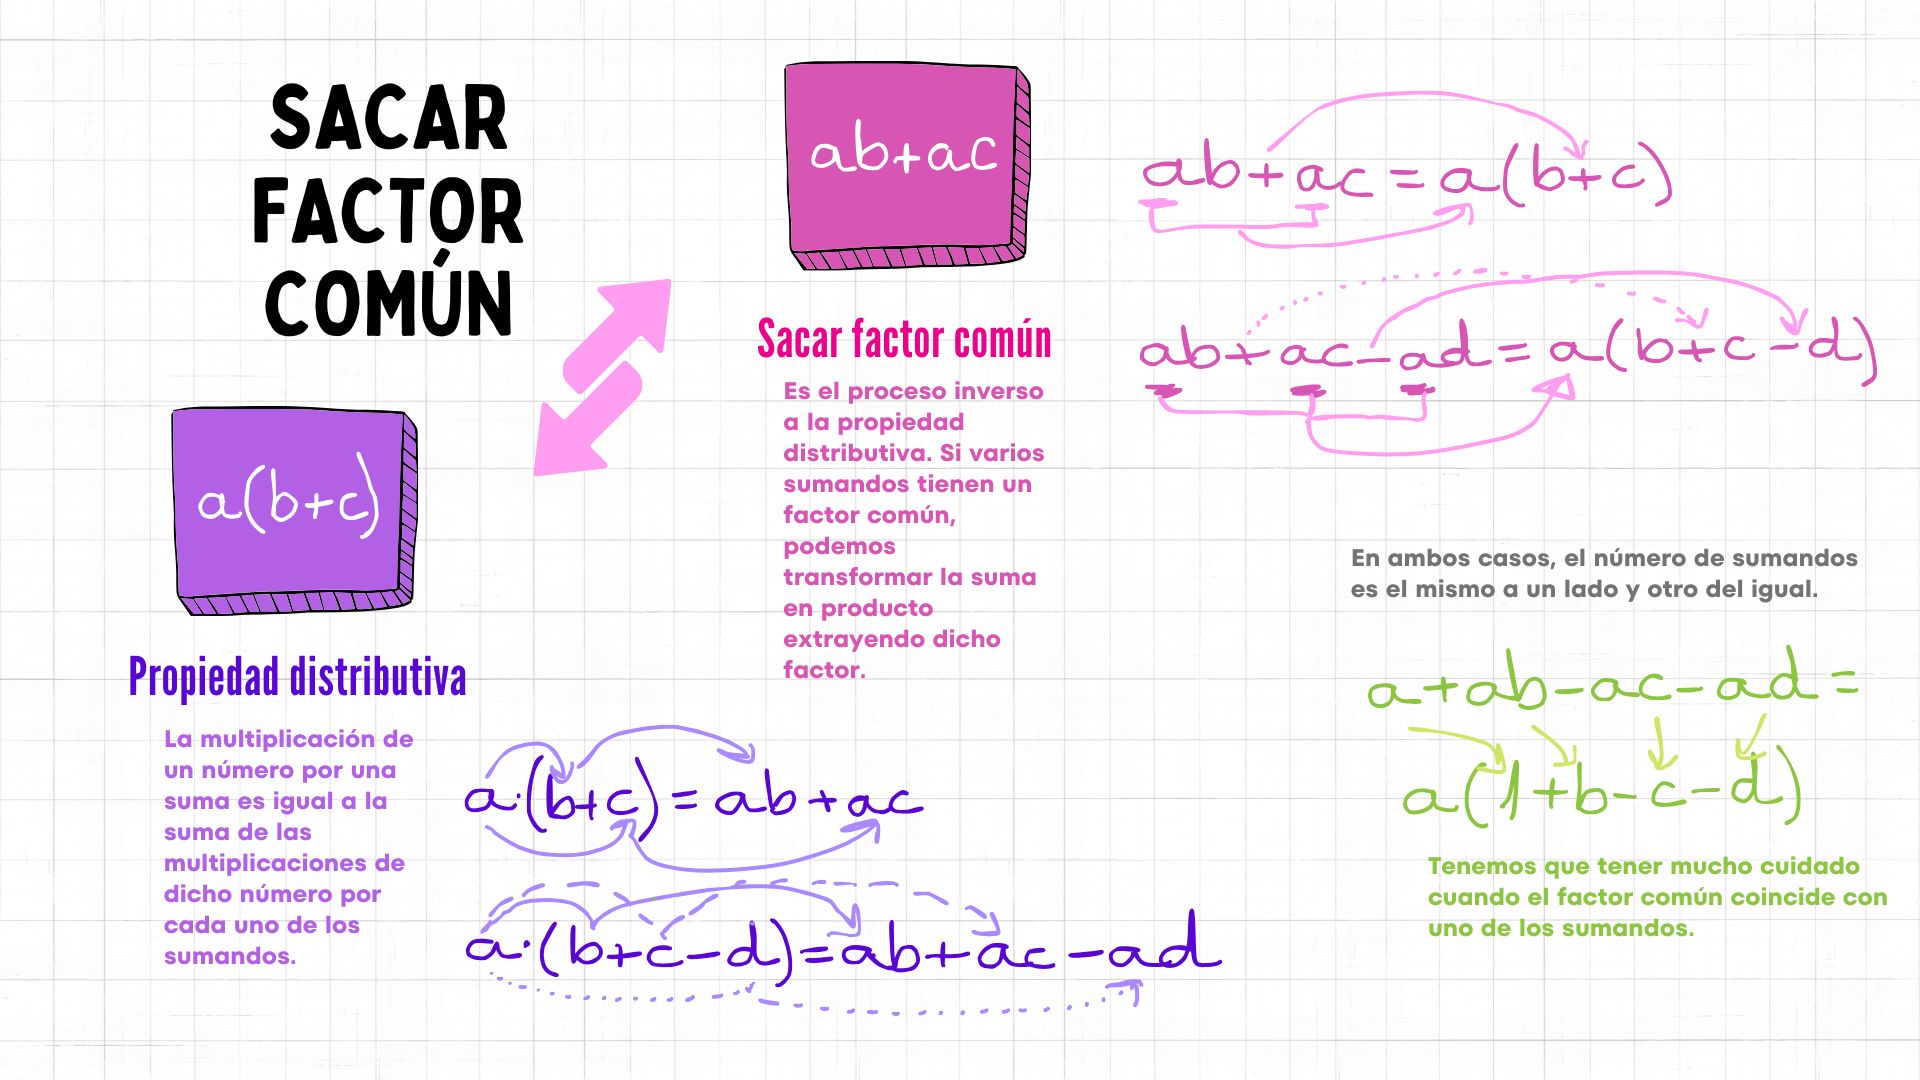 SACAR
FACTOR
COMÚN
a(b+c)
Propiedad distributiva
La multiplicación de
un número por una
suma es igual a la
suma de las
multiplicaciones de
dicho número por
cada uno de los
sumandos.
a·(b+c)=ab+ac
a·(b+c-d)=ab+ac-ad
ab+ac
Sacar factor común
Es el proceso inverso
a la propiedad
distributiva. Si varios
sumandos tienen un
factor común,
podemos
transformar la suma
en producto
extrayendo dicho
factor.
ab+ac=a(b+c)
ab+ac-ad=a(b+c-d)
En ambos casos, el número de sumandos
es el mismo a un lado y otro del igual.
a+ab-ac-ad=
a(1+b-c-d)
Tenemos que tener mucho cuidado
cuando el factor común coincide con
uno de los sumandos.